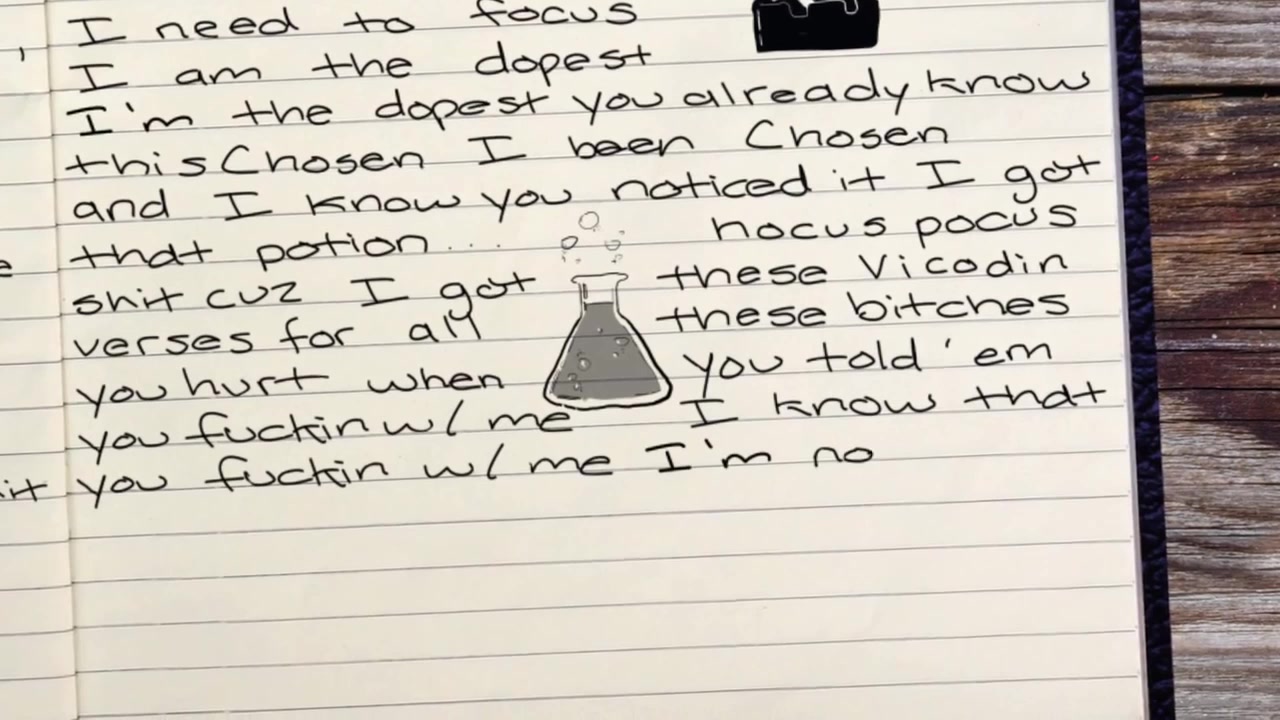 , I need to focus
I am the dopest
I'm the dopest you already know
this Chosen I been Chosen
and I know you noticed it I got
that potion.... hocus pocus
shit cuz I got these Vicodin
verses for all these bitches
you hurt when you told 'em
you fuckin w/ me I know that
you fuckin w/ me I'm no